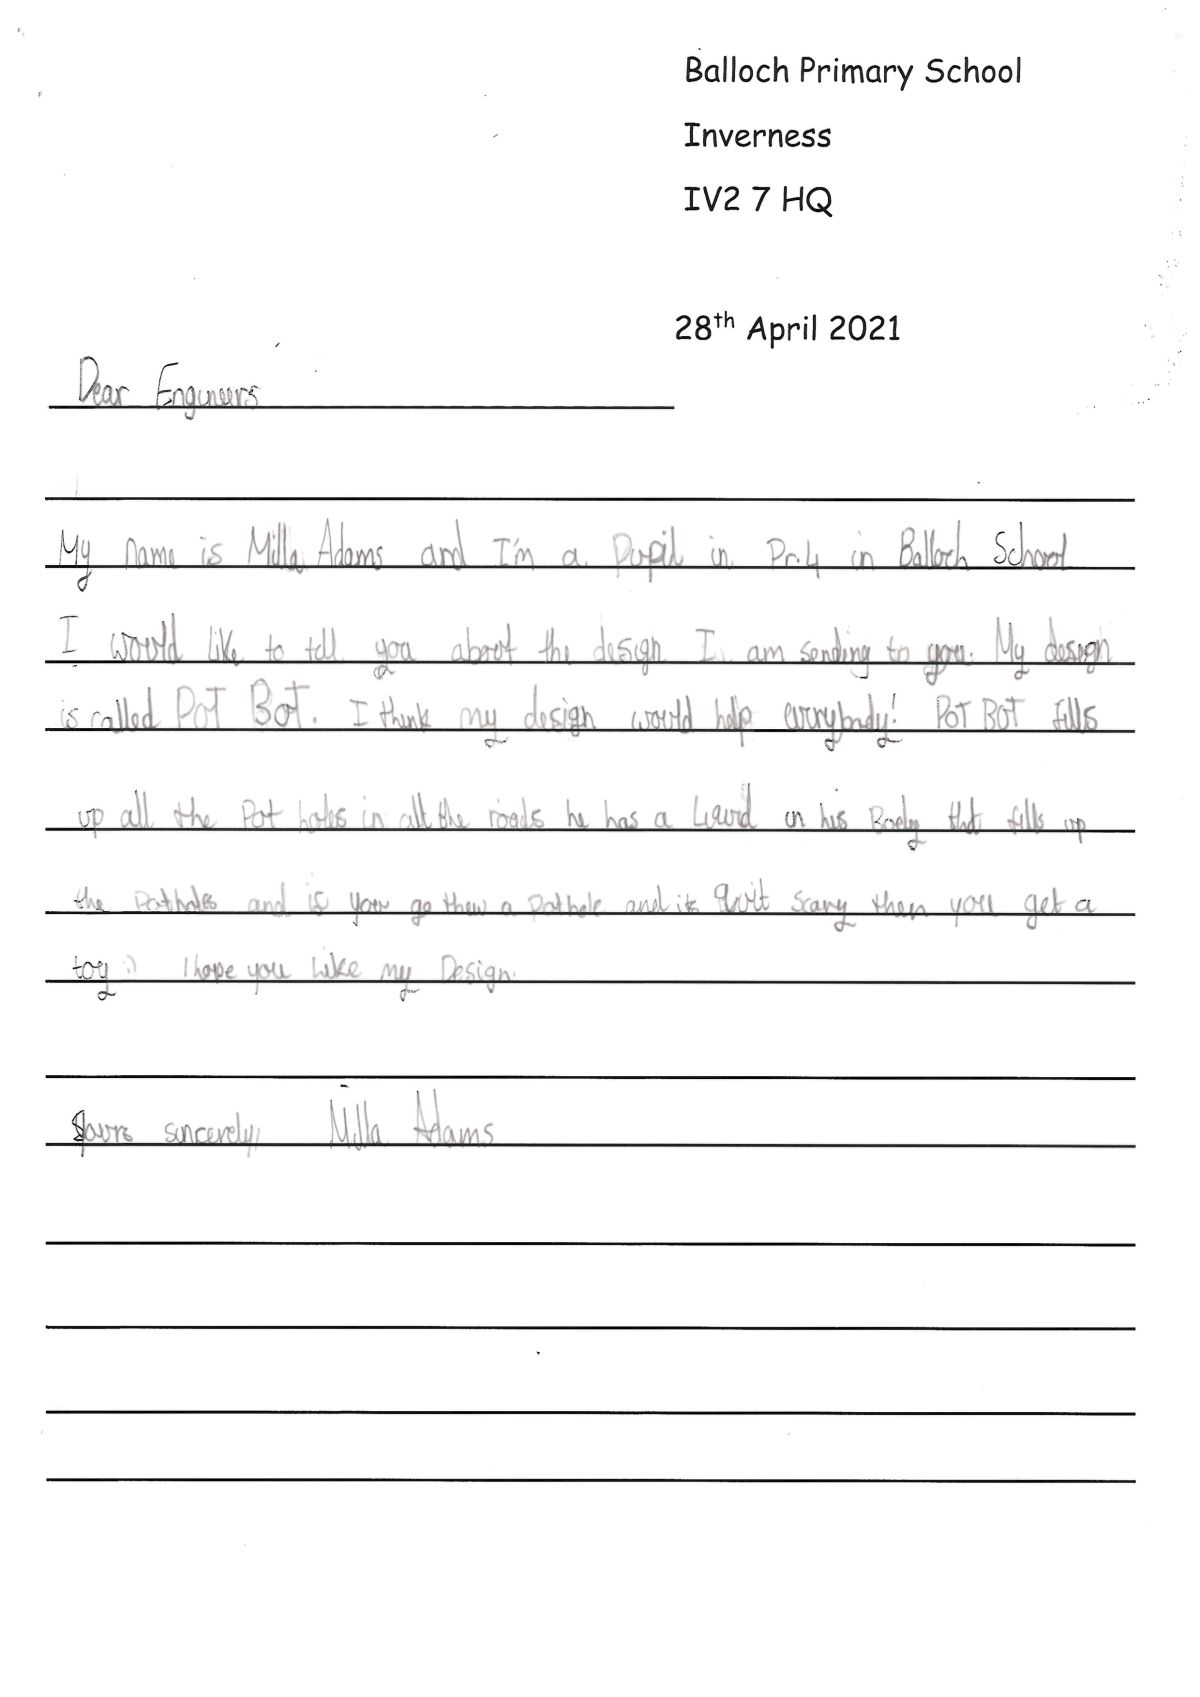 Balloch Primary School
Inverness
IV2 7 HQ
28th April 2021
Dear Engineers
My name is Milla Adams and I'm a Pupil in Pr.4 in Balloch School
I would like to tell you about the design I am sending to you. My design
is called POT BOT. I think my design would help everybody! POT BOT fills
up all the Pot holes in all the roads he has a in his Body that fills up
the Potholes and is you go thew a Pothole and its Quit scary then you get a
toy :) I hope you Like my Design.
Yours sincerely, Milla Adams